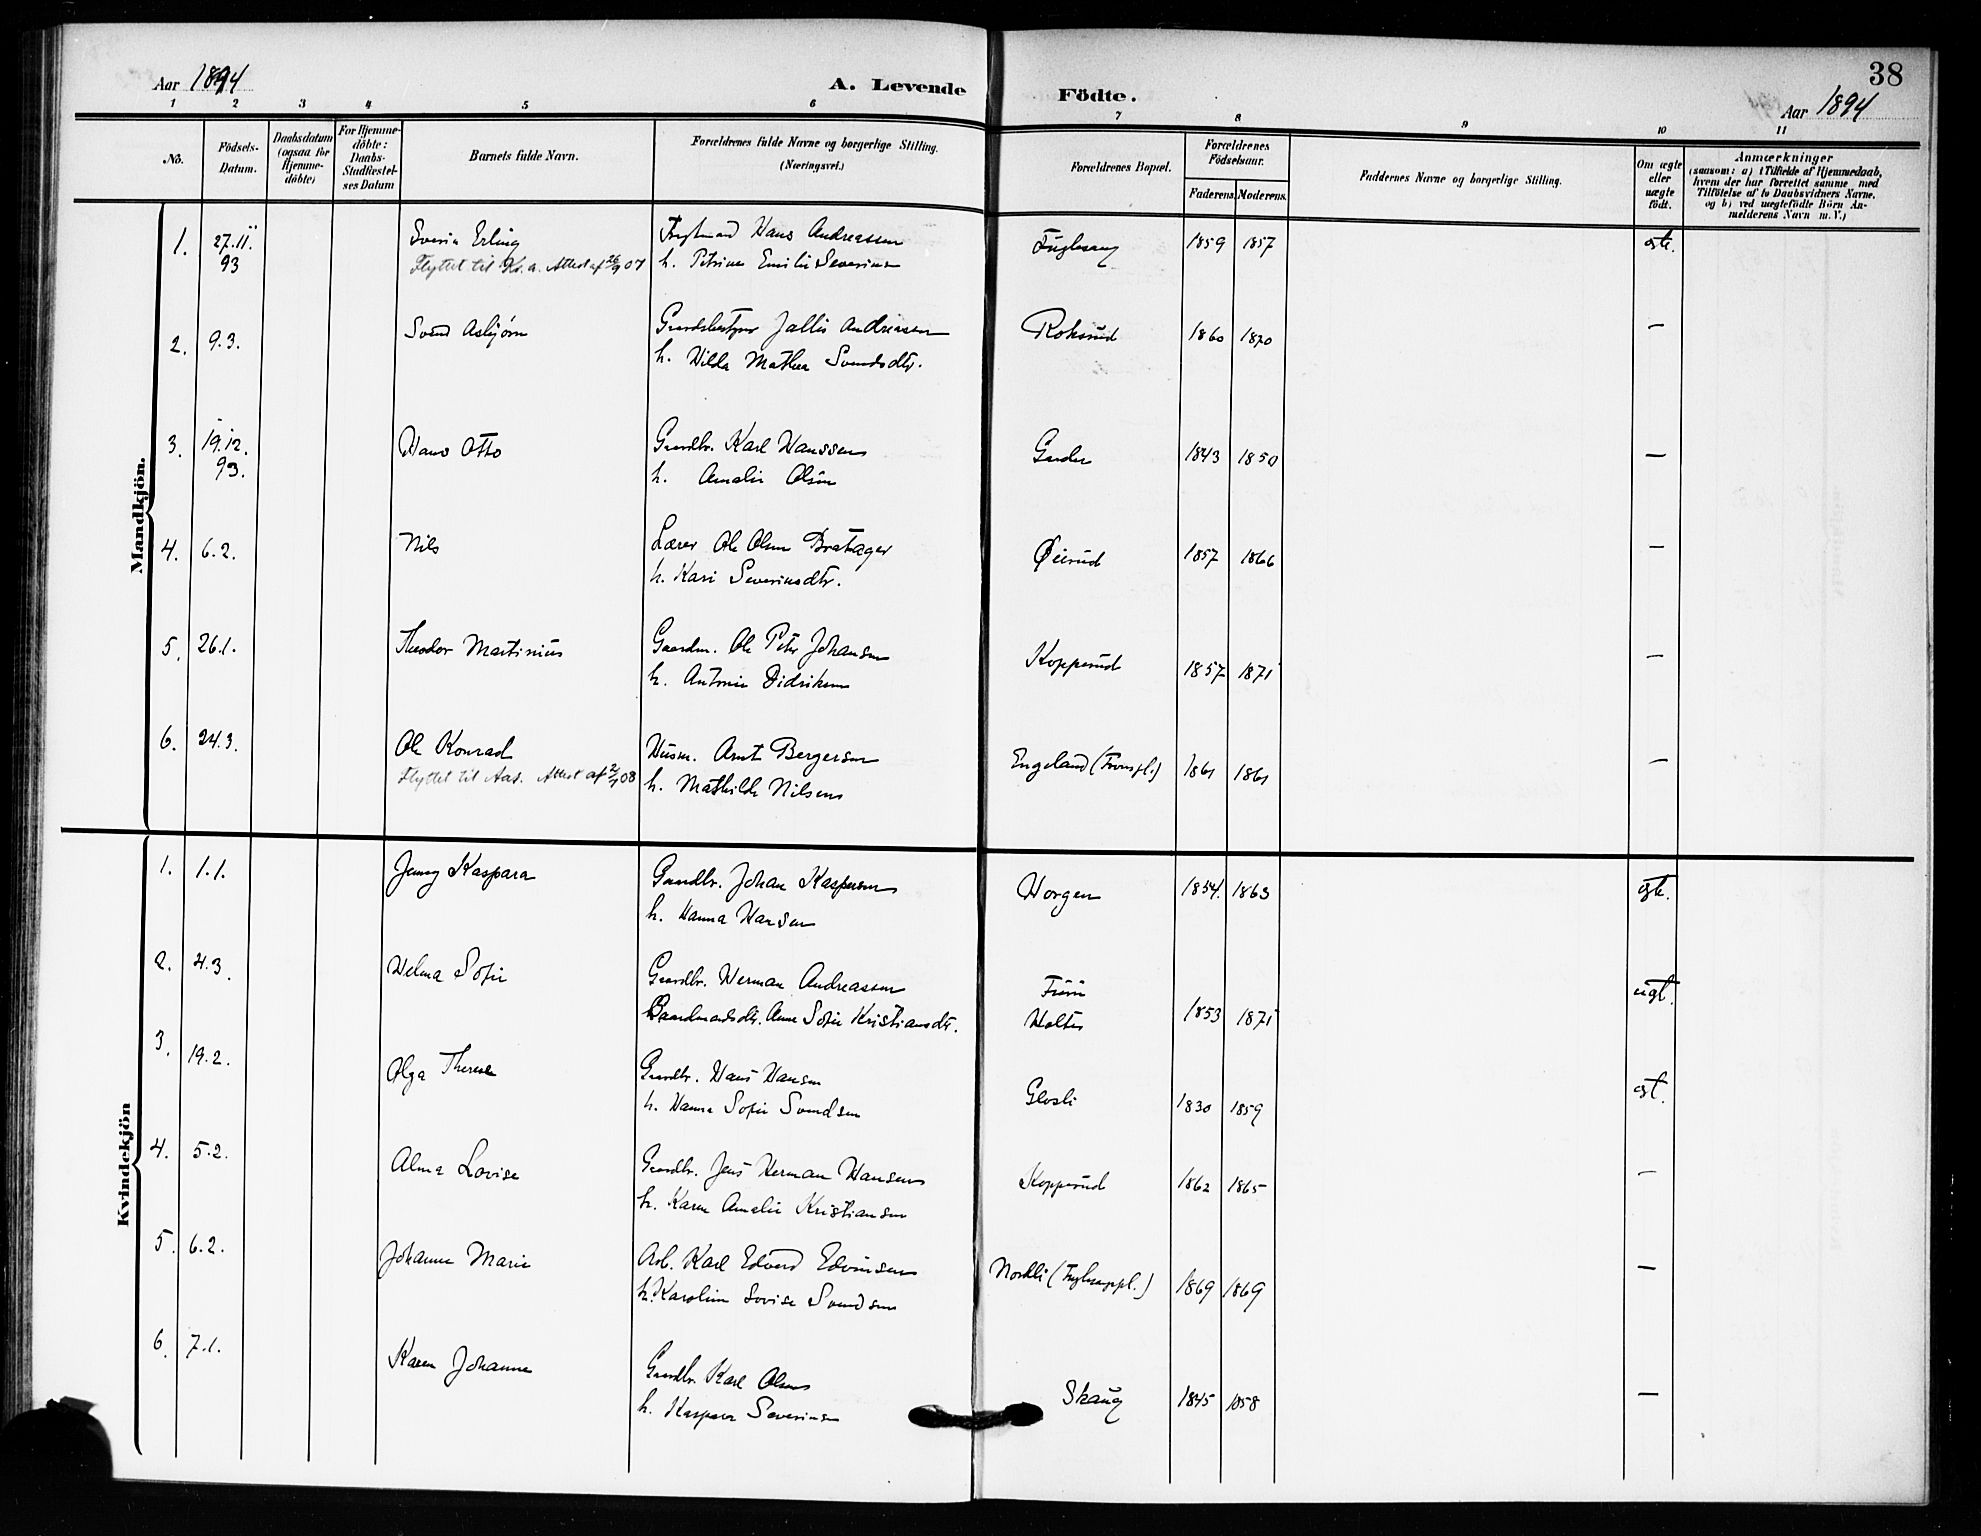 38
Aar 1894
A. Levende Födte.
Aar 1894
1 2 3 4 5 6 7 8 9 10 11
No.
Födsels-Datum.
Daabsdatum (ogsaa for Hjemme-döbte)
For Hjemme-döbte: Daabs-Stadfæstel-ses Datum
Barnets fulde Navn.
Forældrenes fulde Navne og borgerlige Stilling.
(Næringsvei.)
Forældrenes Bopæl.
Forældrenes Födselsaar.
Faderens. Moderens.
Faddernes Navne og borgerlige Stilling.
Om ægte eller uægte födt.
Anmærkninger
(saasom: a) i Tilfælde af Hjemmedaab,
hvem der har forrettet samme med
Tilföielse af to Daabsvidners Navne.
og b) ved uægtefödte Börn An-
melderens Navn m. V.)
Mandkjön.
1. 27.11. 93 Sverin Erling Hans Andreassen Fuglesang 1859 1857 ægte.
Flyttet til Kr.a. Attest af 26/9 07 h. Petrine Emilie Severinsen
2. 9.3. Svend Asbjørn Jallis Andreassen Roksrud 1860 1870 —
h. Hilda Mathea Svendsdtr.
3. 19.12. 93. Hans Otto Gaardbr. Karl Hanssen Garder 1843 1850 —
h. Amalie Olsen
4. 6.2. Nils Lærer Ole Olsen Bratager Øierud 1857 1866 —
h. Kari Severinsdtr.
5. 26.1. Theodor Martinius Gaardm. Ole Peter Johansen Kopperud 1857 1871 —
h. Antonie Didriksen
6. 24.3. Ole Konrad Husm. Arnt Bergersen Engeland 1861 1861 —
Flyttet til Aas. Attest af 08 h. Mathilde Nilsen
Kvindekjön
1. 1.1. Jenny Kaspara Gaardbr. Johan Kaspersen Horgen 1854. 1863 ægte.
h. Hanna Hansen
2. 4.3. Helma Sofie Gaardbr. Herman Andreassen Furu 1853 1871 uægt.
Gaardmandsdtr. Anne Sofie Kristiansdtr. Holter
3. 19.2. Olga Therese Gaardbr. Hans Hansen Glosli 1830 1859 ægt.
h. Hanna Sofie Svendsen
4. 5.2. Alma Lovise Gaardbr. Jens Herman Hansen Kopperud 1862 1865 —
h. Karen Amalie Kristiansen
5. 6.2. Johanne Marie Arb. Karl Edvard Edvinsen Nordli 1869 1869 —
h. Karoline Lovise Svendsen
6. 7.1. Karen Johanne Gaardbr. Karl Olsen Skaug 1845 1858 —
h. Kaspara Severinsen